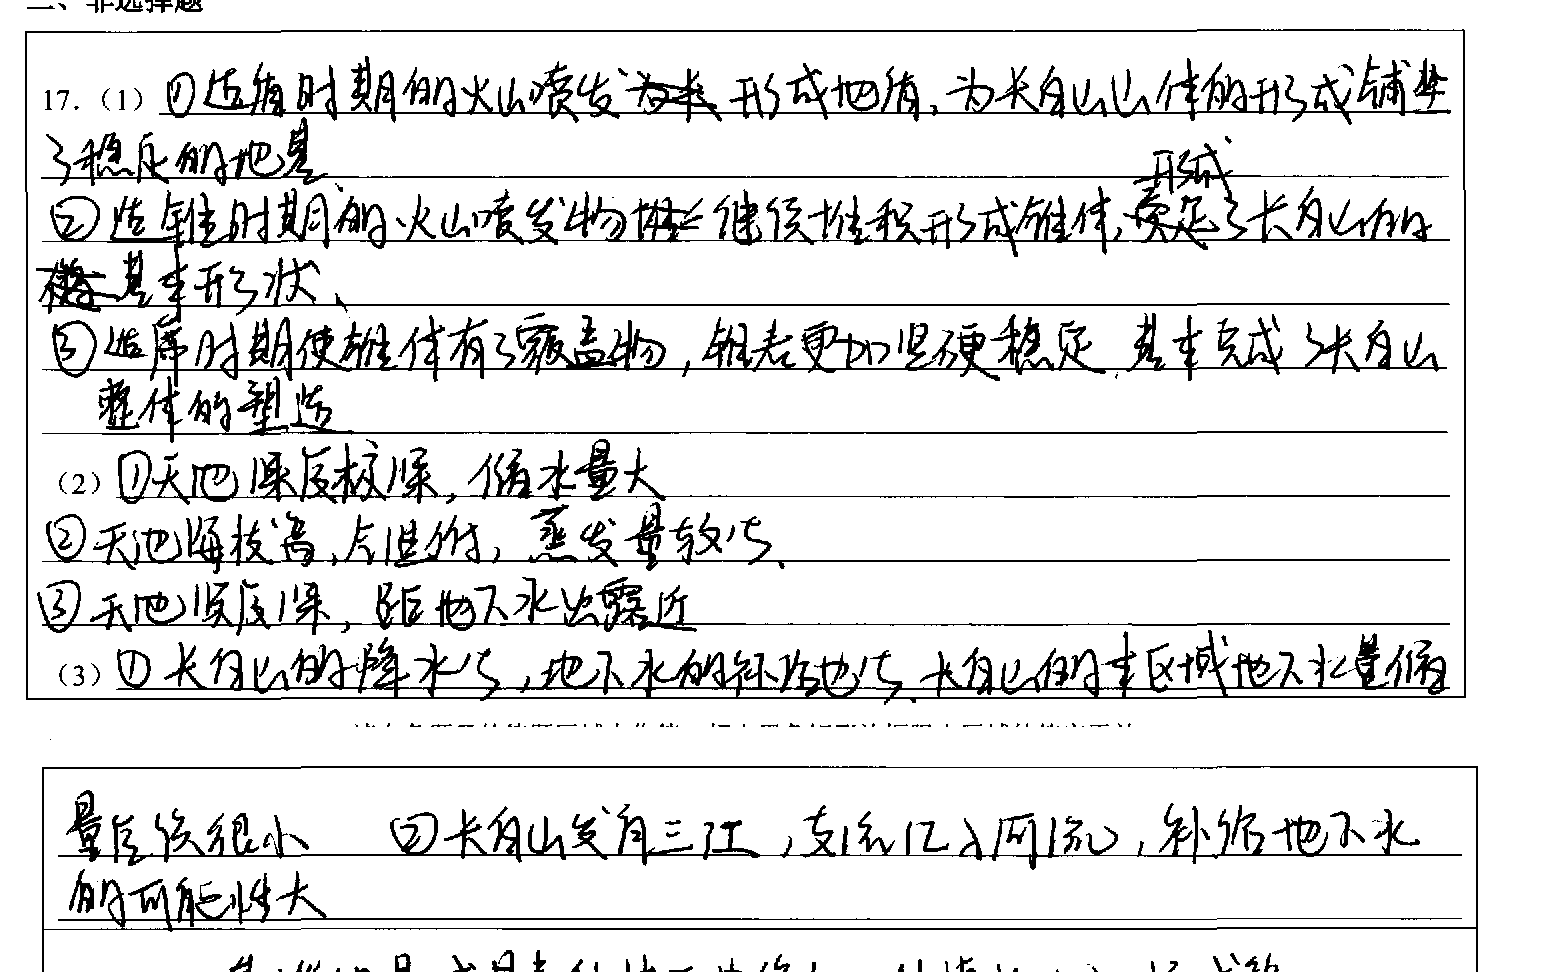 二、非选择题
17.（1）①造盾时期的火山喷发 形成地盾，为长白山山体的形成铺垫
了稳定的地基、
②造锥时期的火山喷发物 继续堆积形成锥体，形成了长白山的
基本形状、
③造席时期使锥体有了覆盖物，锥表更加坚硬稳定，基本完成了长白山
整体的塑造
（2）①天池深度较深，储水量大
②天池海拔高，气温低，蒸发量较少、
③天池深度深，距地下水出露近
（3）①长白山的降水少，地下水的补给也少、长白山的本区域地下水量储
量 很小 ②长白山发育三江，支流汇入河流，补给地下水
的可能性大